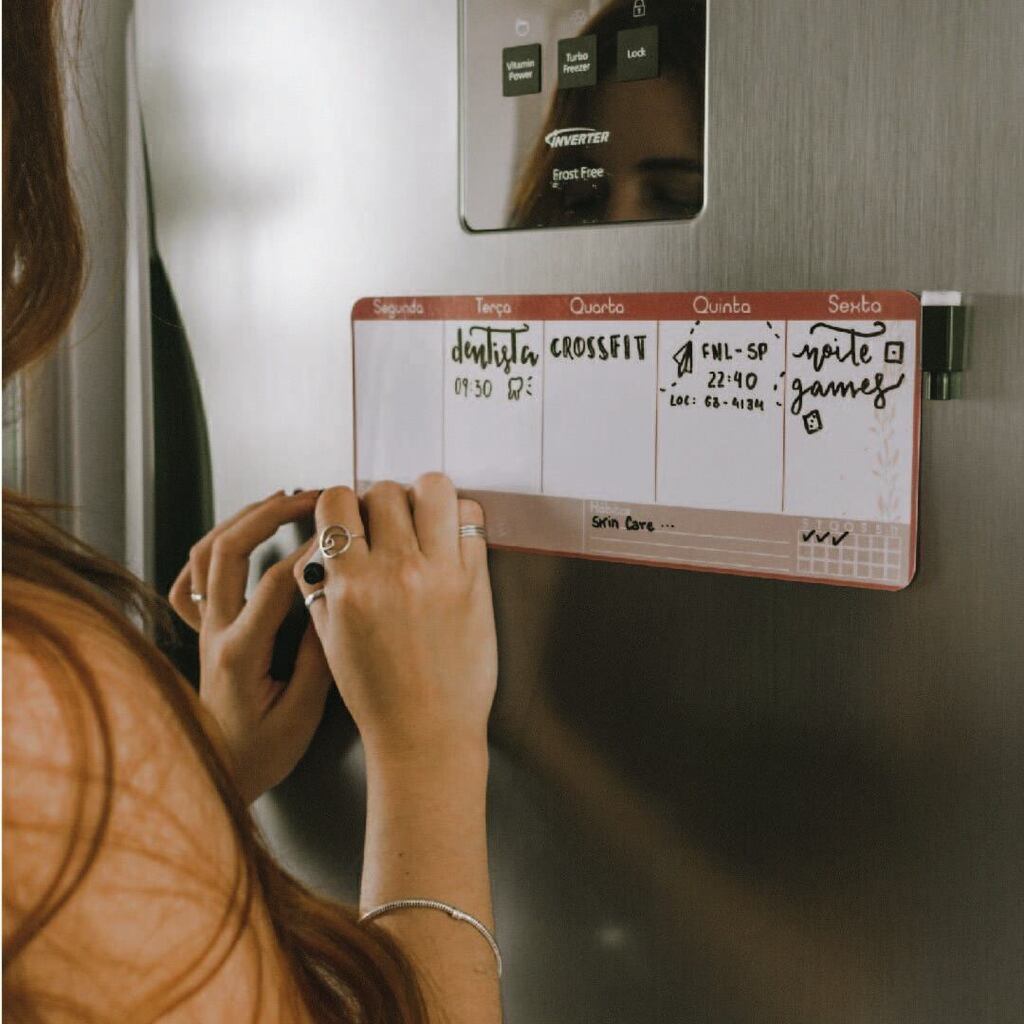 Vitamin
Power
Turbo
Freezer
Lock
INVERTER
Frost Free
Segunda
Terça
Quarta
Quinta
Sexta
dentista
09:30
CROSSFIT
FNL - SP
22:40
LOC: G3 - 4134
noite
games
Hábitos
Skin Care ...
S T Q Q S S D